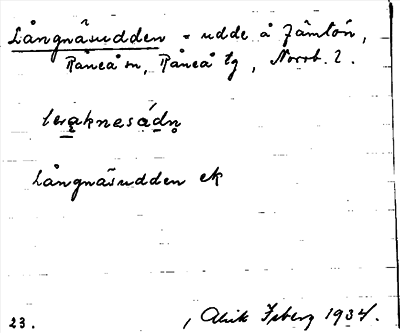 Långnäsudden = udde å Jämtön,
Råneå sn, Råneå tg, Norrb. l.
långnäsudden ek
23. , Alrik Isberg 1934.